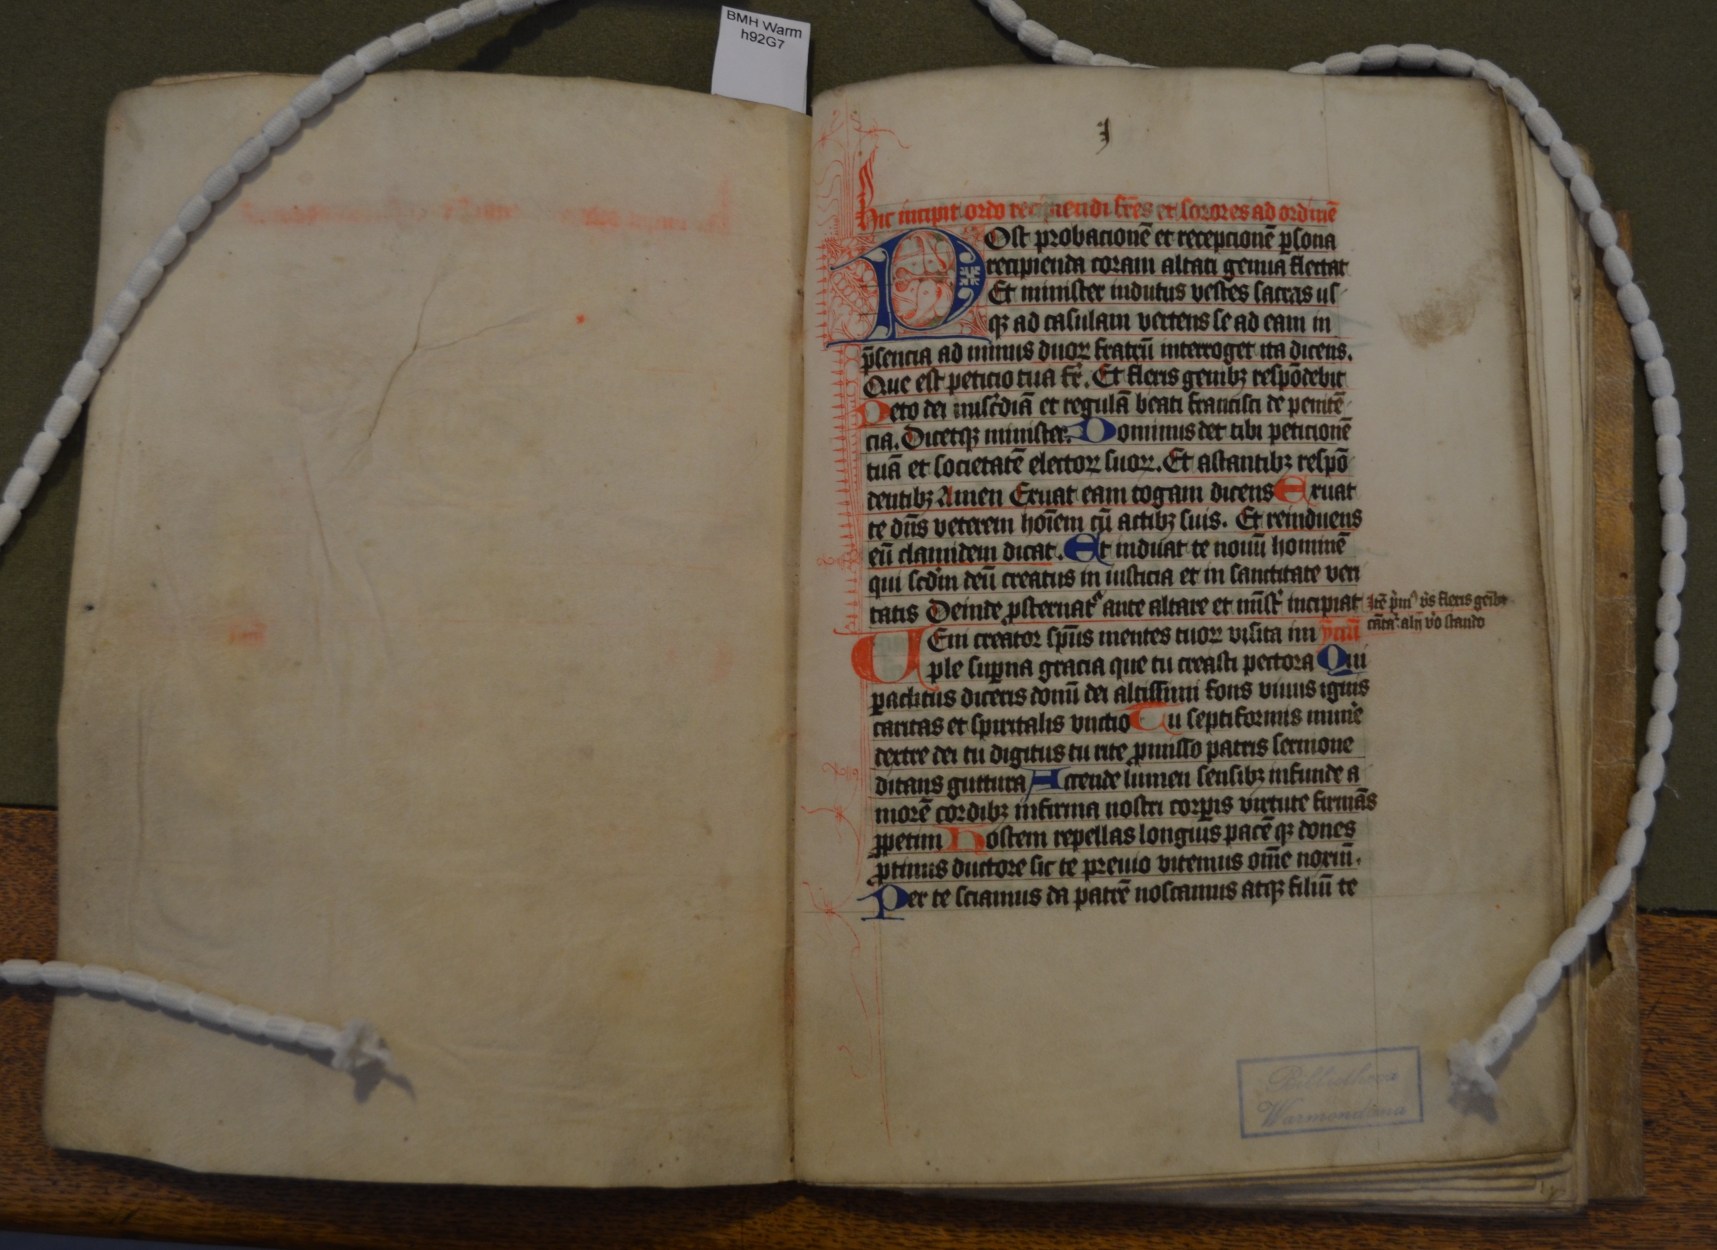 BMH Warm
h92G7
Hic incipit ordo recipiendi fr̄es et sorores ad ordinē
POst probacionē et recepcionē p̲sona
recipienda coram altari genua flectat
Et minister indutus vestes sacras us
qꝫ ad casulam vertens se ad eam in
p̄sencia ad minus duoꝝ fratrū interroget ita dicens.
Que est peticio tua fr̄. Et flexis genibꝫ respōdebit
Peto dei mis̄cdiā et regulā beati francisci de penitē
cia. Dicetqꝫ minister. Dominus det tibi peticionē
tuā et societatē electoꝝ suoꝝ. Et astantibꝫ respō
dentibꝫ Amen Exuat eam togam dicens Exuat
te dn̄s veterem hoīem cū actibꝫ suis. Et reinduens
eū clamidem dicat. Et induat te novū hominē
qui scd̄m deū creatus in iusticia et in sanctitate veri
tatis Deinde ꝓsternatᷣ ante altare et mīst̄ incipiat
VEni creator sp̄us mentes tuoꝝ visita im ỹmū
ple sup̲na gracia que tu creasti pectora Qui
paclitus diceris donū dei altissimi fons vivus ignis
caritas et spiritalis vnctio Tu septiformis munē
dextre dei tu digitus tu rite ꝓmisso patris sermone
ditans guttura Accende lumen sensibꝫ infunde a
morē cordibꝫ infirma nostri corp̲is virtute firmās
p̲petim Hostem repellas longius pacē qꝫ dones
ꝓtinus ductore sic te previo vitemus om̄e noxiū.
Per te sciamus da patrē noscamus atqꝫ filiū te
flexis genibꝫ
alij vo stando
Bibliotheca
Warmondana